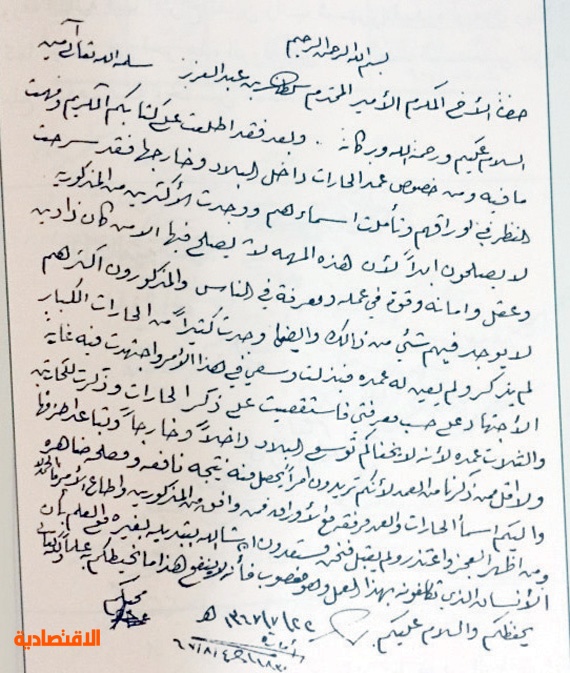 بسم الله الرحمن الرحيم
حضرة الأخ المكرم الأمير المحترم بن عبد العزيز سلمه الله تعالى آمين
السلام عليكم ورحمة الله وبركاته .. وبعد فقد اطلعت على كتابكم الكريم وفهمت
ما فيه ومن خصوص عمد الحارات داخل البلاد وخارجها فقد سرحت
النظر في اوراقهم وتأملت اسماءهم ووجدت الأكثرين من المذكورين
لا يصلحون ابداً لأن هذه المهمه لا يصلح فيها الا من كان ذا دين
وعقل وامانه وقوة في عمله ومعرفة في الناس والمذكورون اكثرهم
لا يوجد فيهم شئي من ذالك وايضا وجدت كثيراً من الحارات الكبار
لم يذكر ولم يعين له عمده فبذلت وسعي في هذا الأمر واجتهدت فيه غاية
الأجتهاد على حسب معرفتي فاستقصيت على ذكر الحارات وذكرت للحارتين
والثلاث عمده لأنه لا يخفاكم توسع البلاد داخلاً وخارجاً وتباعد اطرافها
ولا اقل من ذكرنا من العدد لأنكم تريدون امراً يحصل فيه نتيجه نافعه ومصلحه ضاهره
واليكم اسماء الحارات والعمد مرفقه مع الأوراق فمن وافق من المذكورين واطاع الأمر فالحمد لله
ومن اظهر العجز واعتذر ولم يقبل فنحن مستعدون ان شاء الله بتبديله بغيره مع العلم بأن
الأنسان الذي تكلفونه بهذا العمل وهو مغصوب فأنه لا ينفع هذا ما نحيطكم به علماً والله تعالى
يحفظكم والسلام عليكم
محبكم
١٣٦٧/٧/٢٢ هـ
الاقتصادية